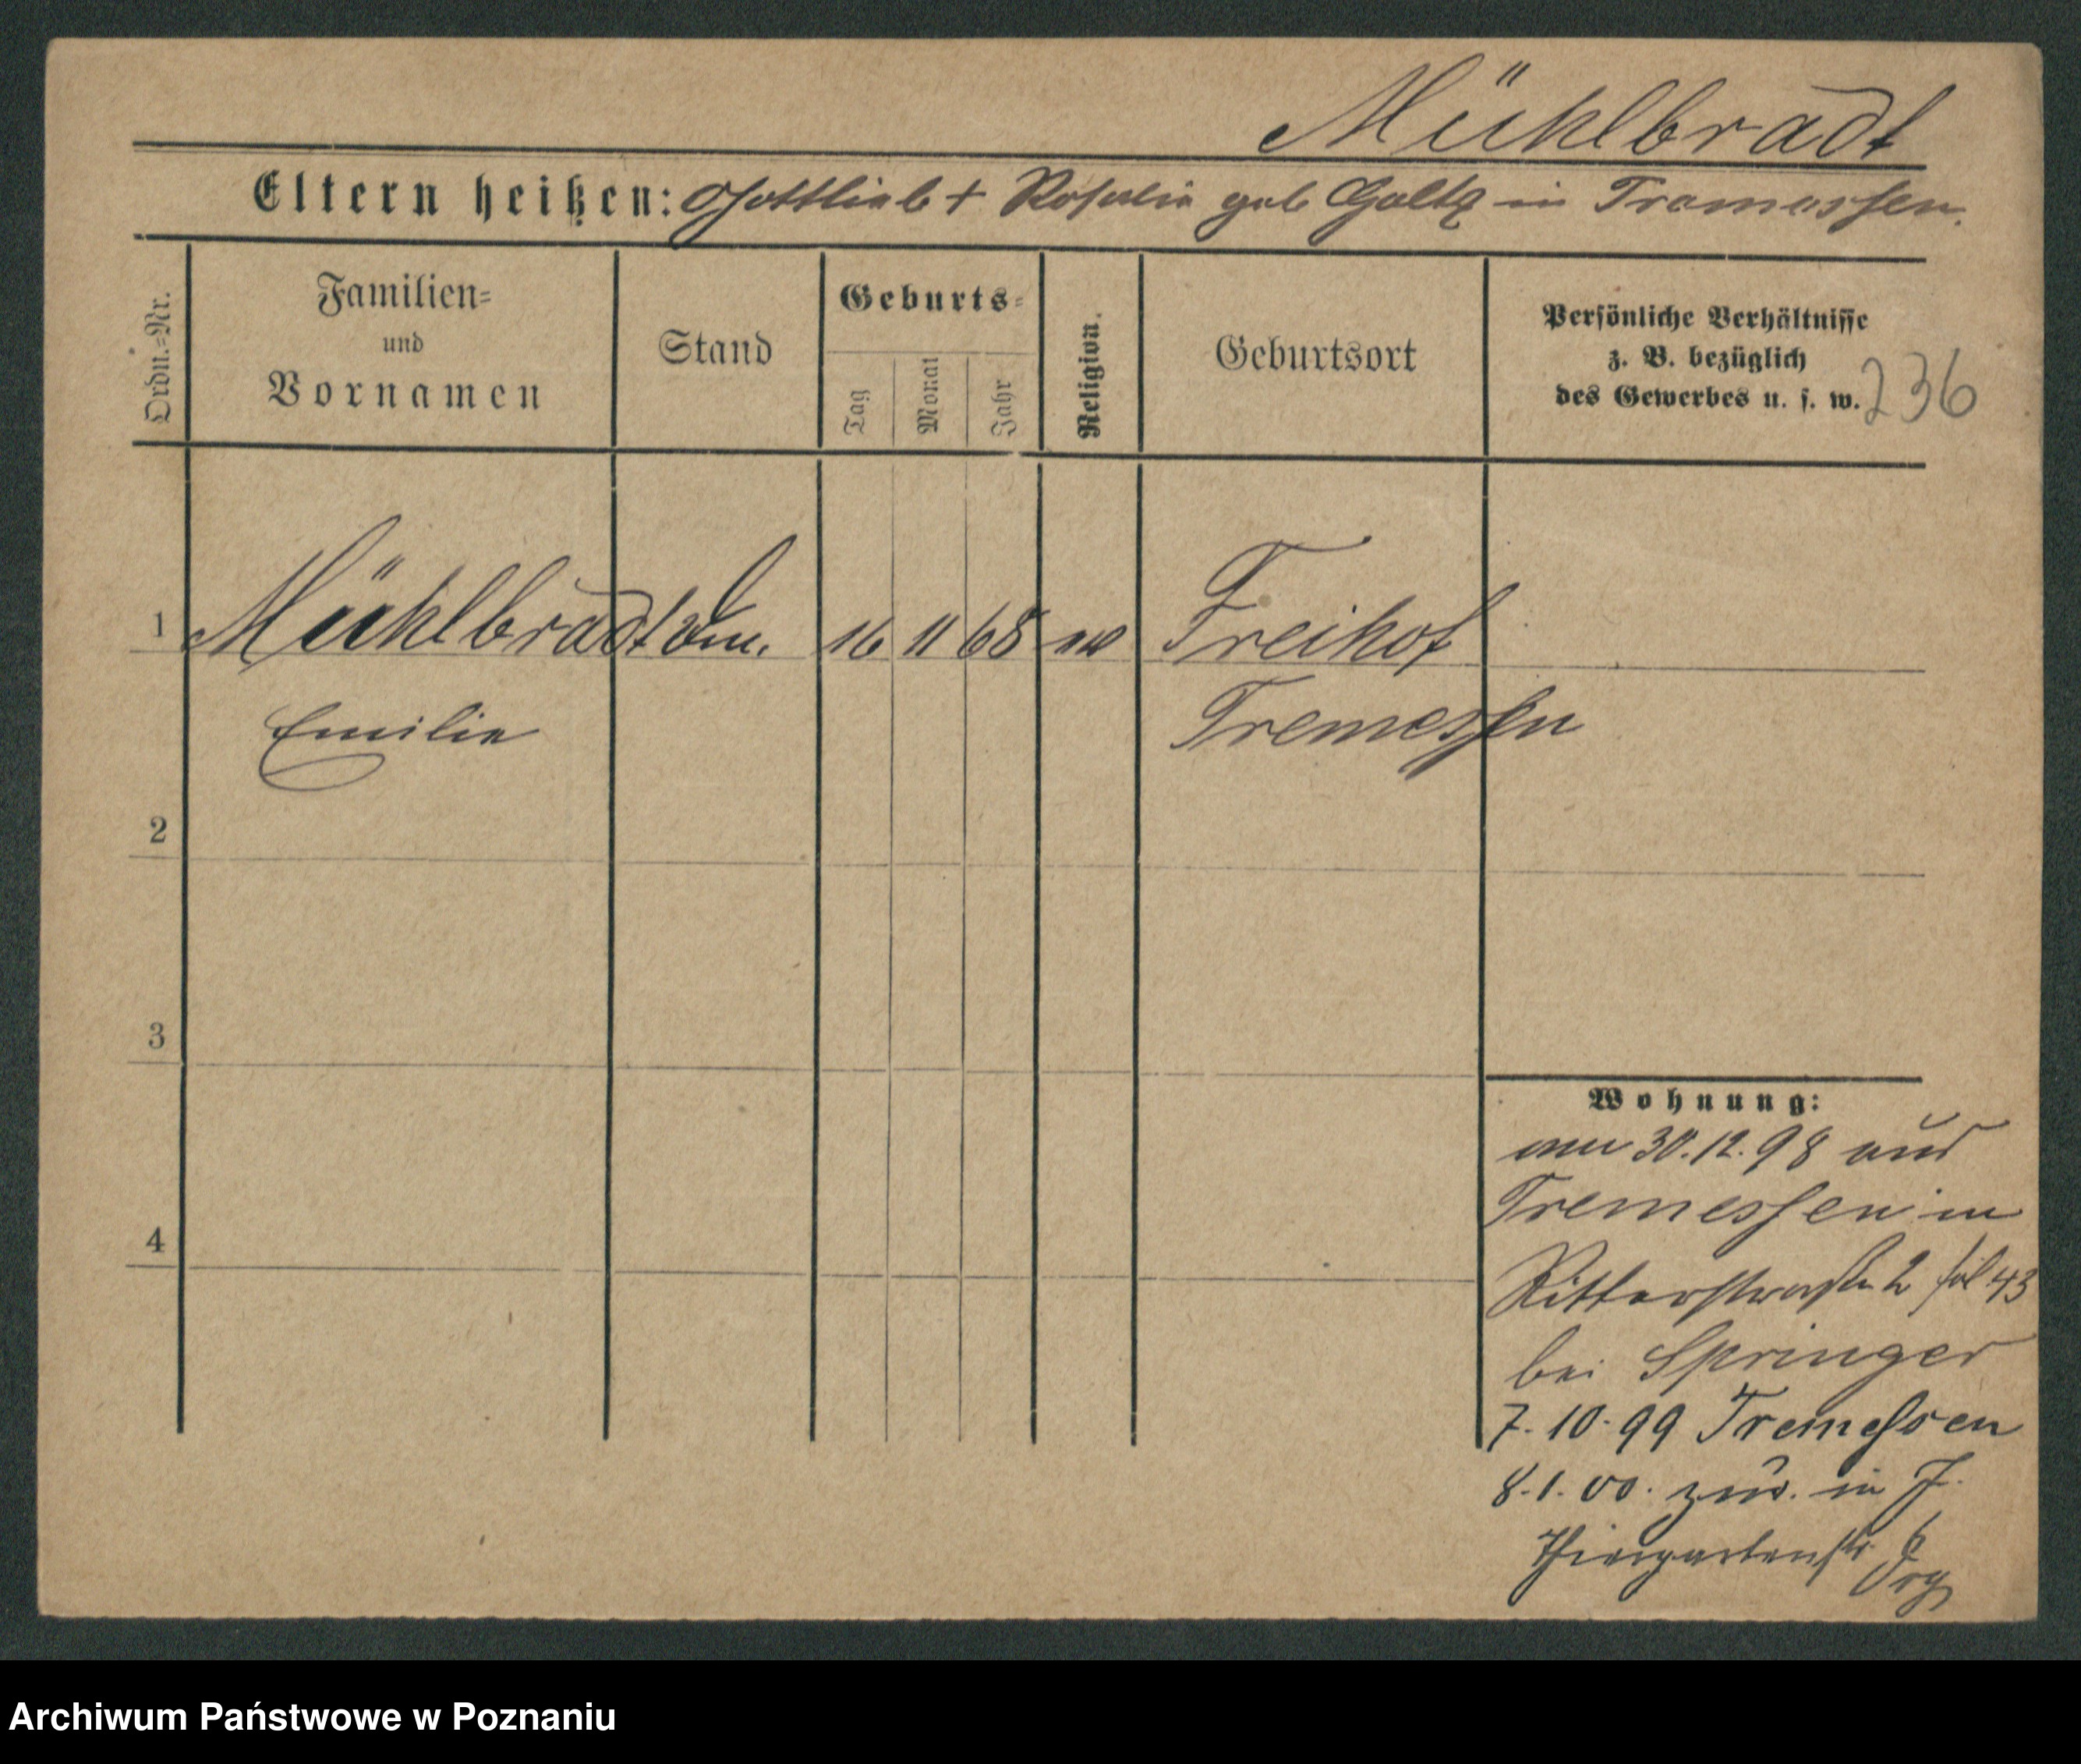 Mühlbradt
Eltern heißen: Gottlieb + Rosalie geb Goltz in Tremessen.
Ordn.=Nr.
Familien=
und
Vornamen
Stand
Geburts=
Tag
Monat
Jahr
Religion.
Geburtsort
Persönliche Verhältnisse
z. B. bezüglich
des Gewerbes u. s. w.
236
1 Mühlbradt 16 11 68 Freihof
Emilie Tremessen
2
3
4
Wohnung:
am 30.12.98 aus
Tremessen in
Ritterstraße 2 fol 43
bei Springer
7.10.99 Tremessen
8.1.00. zur. in J.
Thiergartenstr.
Archiwum Państwowe w Poznaniu